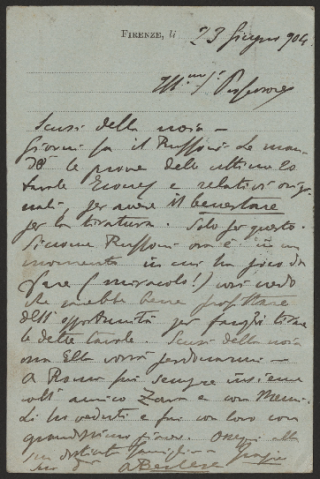 FIRENZE, li 23 Giugno 904
Ill.mo Sr. Professore
Scusi della noia –
Giorni fa il Ruffoni Le man
dò le prove delle ultime
tavole e relativi origi
nali per avere il benestare
per la tiratura. Solo per questo.
Siccome Ruffoni ora è in un
momento in cui ha poco da
fare (miracolo!) così vedo
che sarebbe bene profittare
dell' opportunità per fargli tirare
le dette tavole. Scusi della noia
ma Ella vorrà perdonarmi –
A Roma fui sempre insieme
coll' amico e con
Li ho veduti e fui con loro con
grandissimo piacere. Ossequi alla
sua famiglia e
suo A Berlese